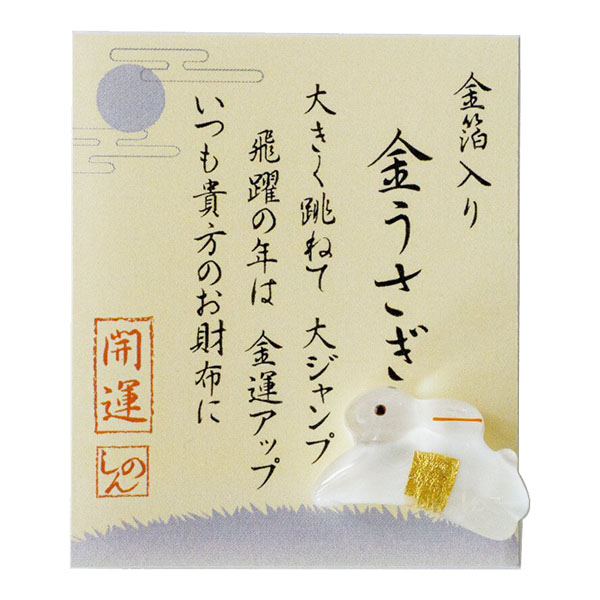 金箔入り
金うさぎ
大きく跳ねて 大ジャンプ
飛躍の年は 金運アップ
いつも貴方のお財布に
開運
しのん